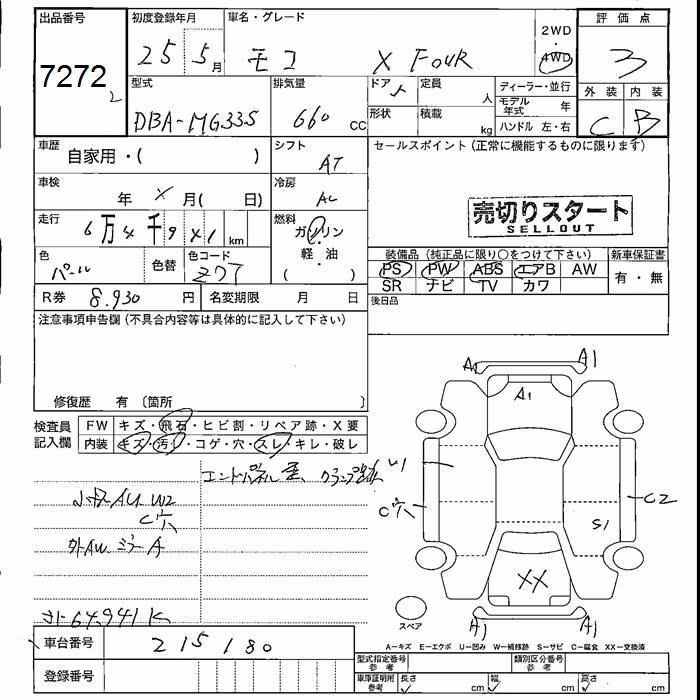 出品番号 初度登録年月 車名・グレード 2WD 評価点
7272 25 5月 モコ X FOUR ・ 4WD 3
2
型式 排気量 ドア 5 定員 人 ディーラー・並行 外装 内装
DBA-MG33S 660 CC 形状 積載 kg モデル年式 年 C B
ハンドル 左・右
車歴 自家用・( ) シフト AT セールスポイント(正常に機能するものに限ります)
車検 年 X 月( 日) 冷房 AC
走行 6万4千9x1 km 燃料 ガソリン 売切りスタート
軽・油 SELLOUT
( )
色 パール 色替 色コード Z7T 装備品(純正品に限り○をつけて下さい) 新車保証書
PS PW ABS エアB AW 有・無
SR ナビ TV カワ
R券 8,930 円 名変期限 月 日 後日品
注意事項申告欄(不具合内容等は具体的に記入して下さい)
修復歴 有〔箇所 〕
検査員 FW キズ・飛石・ヒビ割・リペア跡・X要
記入欄 内装 キズ・汚れ・コゲ・穴・スレ・キレ・破レ
エンドパネル歪、クランプ跡
AU W2
C穴
外AU ミラーA
64941K
A1 A1
A1
U1
C穴 C2
S1
XX
A1 A1
スペア
A−キズ E−エクボ U−凹み W−補修跡 S−サビ C−腐食 XX−交換済
車台番号 215180
登録番号
型式指定番号 参考 類別区分番号 参考
車庫証明用 参考 長さ cm 幅 cm 高さ cm